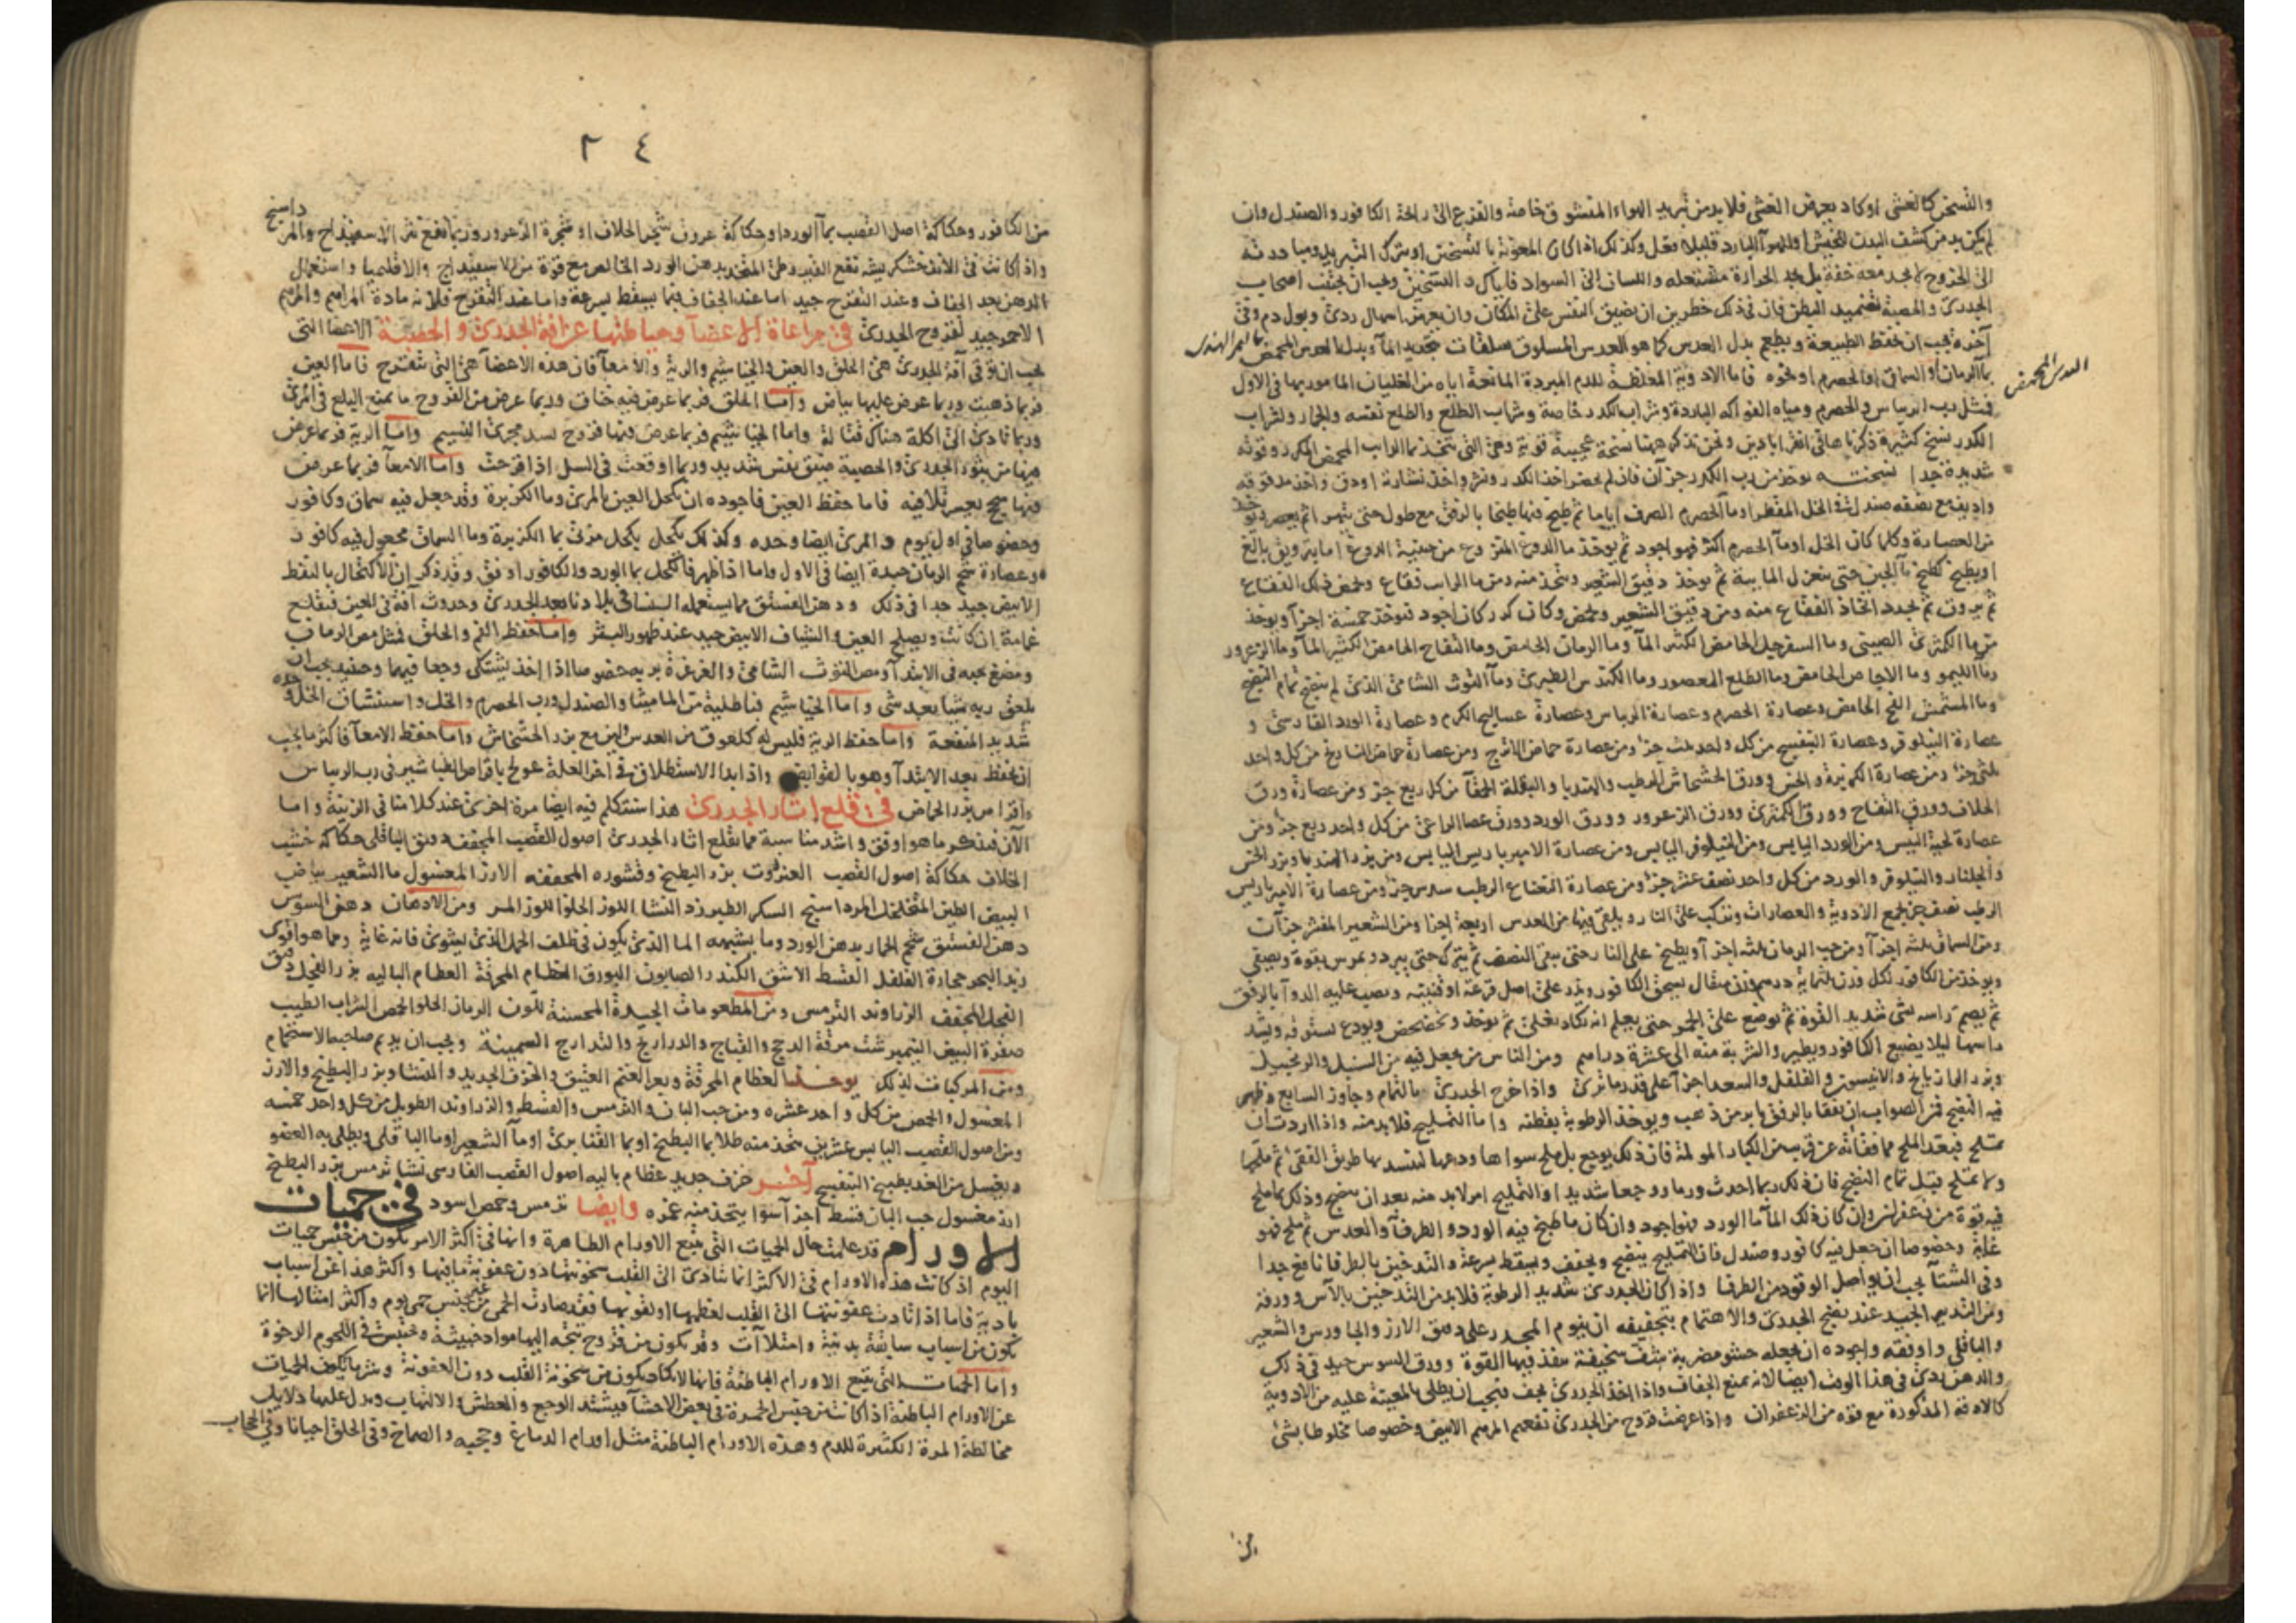 والتسخن كالغشى او كاد يعرض الغشى فلا بد من تبريد الهواء المنشوق خاصة والفزع الى رائحة الكافور والصندل وان
لم يكن بد من كشف البدن للخيش او للهوآ البارد قليلا فعل وكذلك اذا كان المعونة بالتسخين او بترك التبريد ومبادرته
الى الخروج لا يجد معه خفة بل يجد الحرارة مشتعلة واللسان الى السواد فاياك والتسخين ويجب ان يجنب اصحاب
الجدرى والحصبة تضميد البطن فان فى ذلك خطرين ان يضيق النفس على المكان وان يعرض اسهال ردى وبول دم وفى
آخره يجب ان تحفظ الطبيعة ويطعم بدل العدس كما هو العدس المسلوق سلقات بتجديد المآ وبدل العدس المحمض
بالتمر الهندى
العدس المحمض
بمآ الرمان او السماق او الحصرم او نحوه فاما الادوية المغلظة للدم المبردة المانعة اياه من الغليان المامور بها فى الاول
فمثل رب الريباس والحصرم ومياه الفواكه الباردة وشراب الكدر خاصة وشراب الطلع والطلع نفسه والجمار ولشراب
الكدر نسخ كثيرة ذكرناها فى اقراباذين ونحن نذكر ههنا نسخة عجيبة قوية وهى التى تتخذ بماء الرايب المحمض
شديدة جدا نسخته يوخذ من رب الكدر جزآن فان لم يحضر اخذ الكدر ونشر واخذ نشارة او دق واخذ مدقوقه
واديف مع نصفه صندل فى الخل المقطر او مآ الحصرم الصرف اياما ثم طبخ فيها طبخا بالرفق مع طول حتى يتهرا ثم يعصر
من العصارة وكلما كان الخل او مآ الحصرم اكثر فهو اجود ثم يوخذ ما الدوغ المنزوع من جبنية الدوغ
او يطبخ كطبخ مآ الجبن حتى ينعزل المايية ثم يوخذ دقيق الشعير ويتخذ منه ومن ما الرايب فقاع ويحمض ذلك الفقاع
ثم يروق ثم يجدد اتخاذ الفقاع منه ومن دقيق الشعير ويحمض وكلما كرر كان اجود فيوخذ خمسة اجزآ ويوخذ
من ما الكمثرى الصينى وما السفرجل الحامض الكثير المآ وما الرمان الحامض وما التفاح الحامض الكثير المآ وما الزعرور
وما الليمو وما الاجاص الحامض وما الطلع المعصور وما الكندس الطبرى ومآ التوث الشامى الذى لم ينضج تمام النضج
وما المشمش الفج الحامض وعصارة الحصرم وعصارة الريباس وعصارة عساليج الكرم وعصارة الورد الفارسى و
عصارة النيلوفر وعصارة البنفسج من كل واحد ثلث جزؤ ومن عصارة حماض الاترج ومن عصارة حماض النارنج من كل واحد
ثلثى جزؤ ومن عصارة الكزبرة والخس وورق الخشخاش الرطب والهندبا والبقلة الحمقآ من كل ربع جزؤ ومن عصارة ورق
الخلاف وورق التفاح وورق الكمثرى وورق الزعرور وورق الورد وورق عصا الراعى من كل واحد ربع جزؤ ومن
عصارة لحية التيس ومن الورد اليابس ومن النيلوفر اليابس ومن عصارة الامبرباريس اليابس ومن بزر الهندبا وبزر الخس
والجلنار والنيلوفر والورد من كل واحد نصف عشر جزؤ ومن عصارة النعناع الرطب سدس جزؤ ومن عصارة الامبرباريس
الرطب نصف جزؤ يجمع الادوية والعصارات ويركب على النار ويلقى فيها من العدس اربعة اجزا ومن الشعير المقشر جزآن
ومن السماق ثلثه اجزآ ومن حب الرمان ثلثه اجزآ ويطبخ على النار حتى يبقى النصف ثم يترك حتى يبرد ويمرس بقوة ويصفى
ويوخذ من الكافور لكل وزن ثلثمايه درهم وزن مثقال يسحق الكافور ويذر على اصل قرعة او قنينه ويصب عليه الدوآ بالرفق
ثم يصم راسه بشى شديد القوة ثم يوضع على الجمر حتى يعلم انه يكاد يغلى ثم يوخذ ويخضخض ويودع بستوقه ويشد
راسها ليلا يضيع الكافور ويطير والشربة منه الى عشرة دراهم ومن الناس من يجعل فيه من السنبل والزنجبيل
وبزر الرازيانج والانيسون والفلفل والسعد اجزآ على قدر ما ترى واذا خرج الجدرى بالتمام وجاوز السابع وظهر
فيه النضج فمن الصواب ان يفقا بالرفق بابر من ذهب ويوخذ الرطوبة بقطنه واما التمليح فلا بد منه واذا اردت ان
تملح فبعد الملح مما فقاته عن قريب من الكبار المولمة فان ذلك يوجع بل ملح سواها ودعها لينسد بها طريق الفقئ ثم ملحها
ولا تملح قبل تمام النضج فان ذلك ربما احدث ورما ووجعا شديدا والتمليح امر لا بد منه بعد ان ينضج وذلك بما ملح
فيه قوة من زعفران وان كان ذلك المآ ما الورد فهو اجود وان كان ما طبخ فيه الورد والطرفآ والعدس ثم ملح فهو
غاية وخصوصا ان جعل فيه كافور وصندل فان التمليح ينضج ويجفف ويسقط بسرعة والتدخين بالطرفا نافع جدا
وفى الشتآ يجب ان يواصل الوقود من الطرفا واذا كان الجدرى شديد الرطوبة فلا بد من التدخين بالآس وورقه
ومن التدبير الجيد عند نضج الجدرى والاهتمام بتجفيفه ان ينوم المجدر على دقيق الارز والجاورس والشعير
والباقلى واوفقه واجوده ان يجعله حشو مضربة شف سخيفة ينفذ فيها القوة وورق السوسن جيد فى ذلك
والدهن ردى فى هذا الوقت ايضا لانه يمنع الجفاف واذا اخذ الجدرى يجف فيجب ان يطلى بالمعينة عليه من الادوية
كالادقة المذكورة مع قوة من الزعفران واذا عرضت قروح من الجدرى نفعهم المرهم الابيض وخصوصا مخلوطا بشئ
من
٢٤
من الكافور وحكاكة اصل القصب بمآ الورد او حكاكة عروق شجر الخلاف او شجرة الزعرور وربما نفع نثر الاسفيذاج والمر
داسنج
واذا كانت فى الانف خشكريشه نفع القيروطى المتخذ بدهن الورد الخالص مع قوة من الاسفيذاج والاقليميا واستعمال
الدهن بعد الجفاف وعند التقرح جيد اما عند الجفاف فبما يسقط بسرعة واما عند التقرح فلانه مادة المراهم والمرهم
الاحمر جيد لقروح الجدرى فى مراعاة الاعضآ وحياطتها عن آفة الجدرى والحصبة الاعضا التى
يجب ان توقى آفة الجدرى هى الحلق والعين والخياشيم والرية والامعآ فان هذه الاعضآ هى التى تتقرح فاما العين
فربما ذهبت وربما عرض عليها بياض واما الحلق فربما عرض فيه خناق وربما عرض من القروح ما يمنع البلع فى المرئ
وربما تادى الى اكلة هناك قتالة واما الخياشيم فربما عرض فيها قروح تسد مجرى النسيم واما الرية فربما عرض
فيها من بثور الجدرى والحصبة ضيق نفس شديد وربما اوقعت فى السل اذا قرحت واما الامعآ فربما عرض
فيها سحج يعسر تلافيه فاما حفظ العين فاجوده ان تكحل العين بالمرى وما الكزبرة وقد جعل فيه سماق وكافور
وخصوصا فى اول يوم والمرى ايضا وحده وكذلك يكحل بكحل مربى بما الكزبرة وما السماق مجعول فيه كافور
وعصارة شحم الرمان جيدة ايضا فى الاول واما اذا ظهر فالكحل بما الورد والكافور اوفق وقد ذكر ان الاكتحال بالنفط
الابيض جيد جدا فى ذلك ودهن الفستق مما يستعمله النسا فى بلادنا بعد الجدرى وحدوث آفة فى العين فيقلع
غمامة ان كانت ويصلح العين والشياف الابيض جيد عند ظهور البثر واما حفظ الفم والحلق فمثل مص الرمان
ومضغ حبه فى الابتدآ ومص التوت الشامى والغرغرة بربه خصوصا اذا اخذ يشتكى وجعا فيهما وحينيذ يجب ان
يلعق ربه شيا بعد شى واما الخياشيم فباطلية من الماميثا والصندل ورب الحصرم والخل واستنشاق الخل وحده
شديد المنفعة واما حفظ الرية فليس له كلعوق من العدس لين مع بزر الخشخاش واما حفظ الامعآ فاكثر ما يجب
ان تحفظ بعد الابتدآ وهو بالقوابض واذا بدا الاستطلاق فى اخر العلة عولج باقراص الطباشير فى رب الريباس
واقراص بزر الحماض فى قلع آثار الجدرى هذا سنتكلم فيه ايضا مرة اخرى عند كلامنا فى الزينة واما
الآن فنذكر ما هو اوفق واشد مناسبة مما يقلع اثار الجدرى اصول القصب المجفف دقيق الباقلى حكاكة خشب
الخلاف حكاكة اصول القصب العنزروت بزر البطيخ وقشوره المجففه الارز المغسول ما الشعير بياض
البيض الطين المتخلخل المرداسنج السكر الطبرزد النشا اللوز الحلو اللوز المر ومن الادهان دهن السوسن
دهن الفستق شحم الحمار بدهن الورد وما يشبهه الما الذى يكون فى ظلف الحمل الذى يشوى فانه غاية ومما هو اقوى
زبد البحر حجارة الفلفل القسط الاشق الكندر الصابون البورق العظام المحرقة العظام الباليه بزر الفجل دقيق
الفجل المجفف الزراوند الترمس ومن المطعومات الجيدة المحسنة للون الرمان الحلو الحمص الشراب الطيب
صفرة البيض النيمبرشت مرقة الدجج والقباج والدراريج والتدارج السمينة ويجب ان يديم صاحبه الاستحمام
ومن المركبات لذلك يوخذ العظام المحرقة وبعر الغنم العتيق والخزف الجديد والنشا وبزر البطيخ والارز
المغسول والحمص من كل واحد عشره ومن حب البان والترمس والقسط والزراوند الطويل من كل واحد خمسه
ومن اصول القصب اليابس عشرين يتخذ منه طلا بما البطيخ او بما القنابرى او مآ الشعير او ما الباقلى ويطلى به العضو
ويغسل من الغد بطبيخ البنفسج آخر خزف جديد عظام باليه اصول القصب الفارسى نشا ترمس بزر البطيخ
ارز مغسول حب البان قسط اجزآ سوا يتخذ منه غمره وايضا ترمس وحمص اسود فى حميات
الاورام قد علمت حال الحميات التى تتبع الاورام الظاهرة وانها فى اكثر الامر تكون من جنس حميات
اليوم اذ كانت هذه الاورام فى الاكثر انما تتادى الى القلب سخونتها دون عفونة ما فيها واكثر هذا عن اسباب
بادية فاما اذا تادت عفونتها الى القلب لعظمها او لقربها فقد صارت الحمى من غير جنس حمى يوم واكثر امثالها انما
تكون من اسباب سابقة بدنية وامتلاآت وقد يكون من قروح تتجه اليها مواد خبيثة وتحتبس فى اللحوم الرخوة
واما الحميات التى تتبع الاورام الباطنة فانها لا تكاد تكون من سخونة القلب دون العفونة وشرها تكون الحميات
عن الاورام الباطنة اذا كانت من جنس الحمرة فى بعض الاحشآ فيشتد الوجع والعطش والالتهاب ويدل عليها دلايل
مخالطة المرة الكثيرة للدم وهذه الاورام الباطنة مثل اورام الدماغ وحجبه والصماخ وفى الحلق احيانا وفى الحجاب